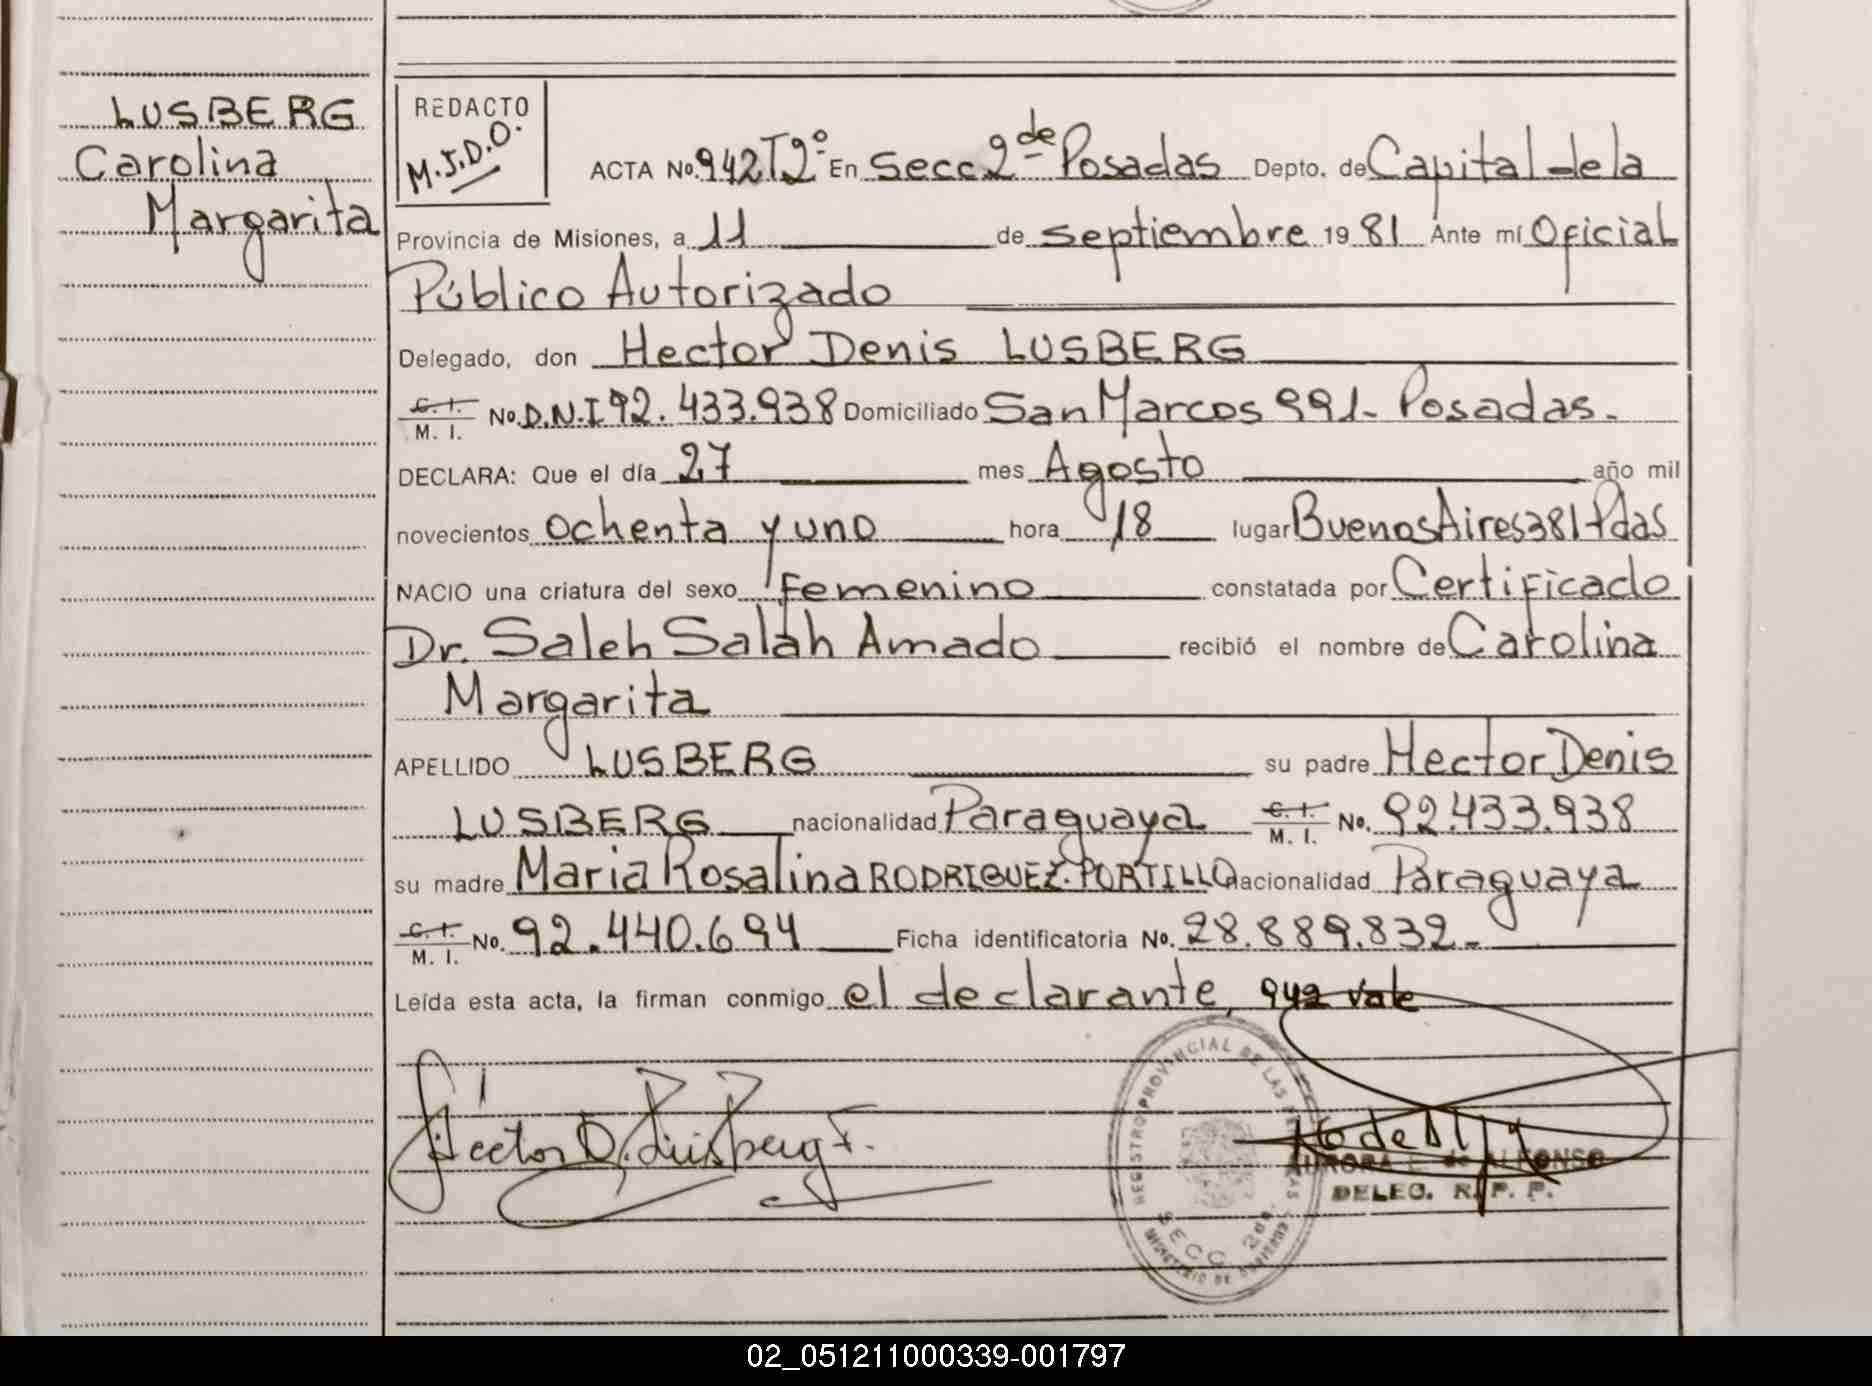 LUSBERG
Carolina
Margarita
REDACTO
M.J.D.O.
ACTA No. 942 T2° En Secc 2de Posadas Depto. de Capital de la
Provincia de Misiones, a 11 de septiembre 1981 Ante mí Oficial
Público Autorizado
Delegado, don Hector Denis LUSBERG
C. I. M. I. No. D.N.I 92.433.938 Domiciliado San Marcos 991- Posadas.
DECLARA: Que el día 27 mes Agosto año mil
novecientos ochenta y uno hora 18 lugar Buenos Aires 381 Pdas
NACIO una criatura del sexo femenino constatada por Certificado
Dr. Saleh Salah Amado recibió el nombre de Carolina
Margarita
APELLIDO LUSBERG su padre Hector Denis
LUSBERG nacionalidad Paraguaya C. I. M. I. No. 92.433.938
su madre Maria Rosalina RODRIGUEZ-PORTILLO nacionalidad Paraguaya
C. I. M. I. No. 92.440.694 Ficha identificatoria No. 28.889.832.-
Leída esta acta, la firman conmigo el declarante, 942 vale
Hector D. Luisberg F.
REGISTRO PROVINCIAL DE LAS PERSONAS
SECC 2da.
MINISTERIO DE GOBIERNO
AURORA E. de ALFONSO
DELEG. R. P. P.
02_051211000339-001797